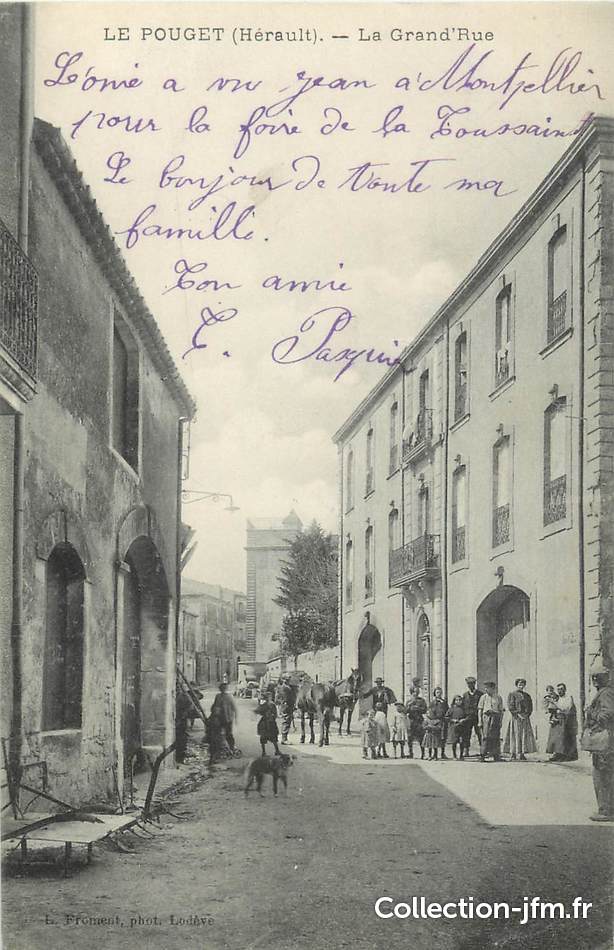 LE POUGET (Hérault). — La Grand'Rue
L'onié a vu jean a Montpellier
pour la foire de la Toussaint
Le bonjour de toute ma
famille.
Ton amie
T. Pasquie
L. Froment, phot. Lodève
Collection-jfm.fr